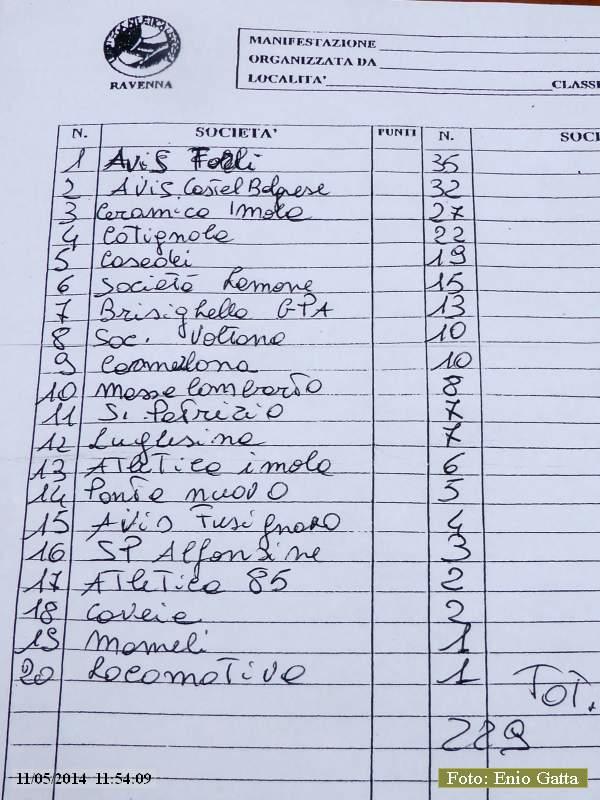 RAVENNA
MANIFESTAZIONE
ORGANIZZATA DA
LOCALITA'
CLASSI
N. SOCIETA' PUNTI N. SOCI
1 Avis Forlì 35
2 Avis Castel Bolognese 32
3 Ceramica Imola 27
4 Cotignola 22
5 Casadei 19
6 Società Lamone 15
7 Brisighella GPA 13
8 Soc. Voltana 10
9 10
10 Massa Lombarda 8
11 S. Patrizio 7
12 Lughesina 7
13 Atletica imola 6
14 Ponte nuovo 5
15 Avis Fusignano 4
16 SP Alfonsine 3
17 Atletica 85 2
18 2
19 Mameli 1
20 Locomotiva 1
TOT.
229
11/05/2014 11:54:09
Foto: Enio Gatta